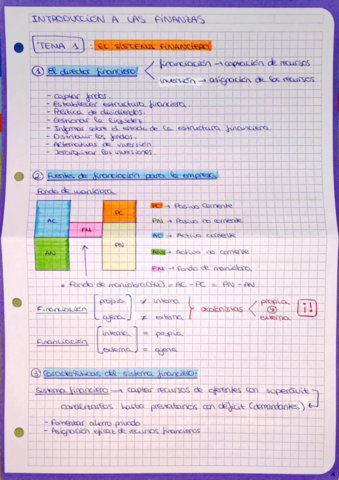 INTRODUCCIÓN A LAS FINANZAS
TEMA 1 : EL SISTEMA FINANCIERO
① El director financiero
financiación → captación de recursos
inversión → asignación de los recursos
- Captar fondos.
- Establecer estructura financiera.
- Política de dividendos.
- Gestionar la liquidez.
- Informar sobre el estado de la estructura financiera.
- Distribuir los fondos.
- Alternativas de inversión
- Jerarquizar las inversiones.
② Fuentes de financiación para la empresa
Fondo de maniobra
AC
AN
FM
PC
PN
PC → Pasivo corriente
PN → Pasivo no corriente
AC → Activo corriente
AN → Activo no corriente
FM → Fondo de maniobra
* Fondo de maniobra (FM) = AC - PC = PN - AN
Financiación
propia ≠ interna
ajena ≠ externa
accionistas
propia
y
externa
¡!
Financiación
interna = propia
externa = ajena
③ Características del sistema financiero
Sistema financiero → captar recursos de oferentes con superávit
canalizarlos hasta prestatarios con déficit (demandantes)
- Fomentar ahorro privado
- Asignación eficaz de recursos financieros